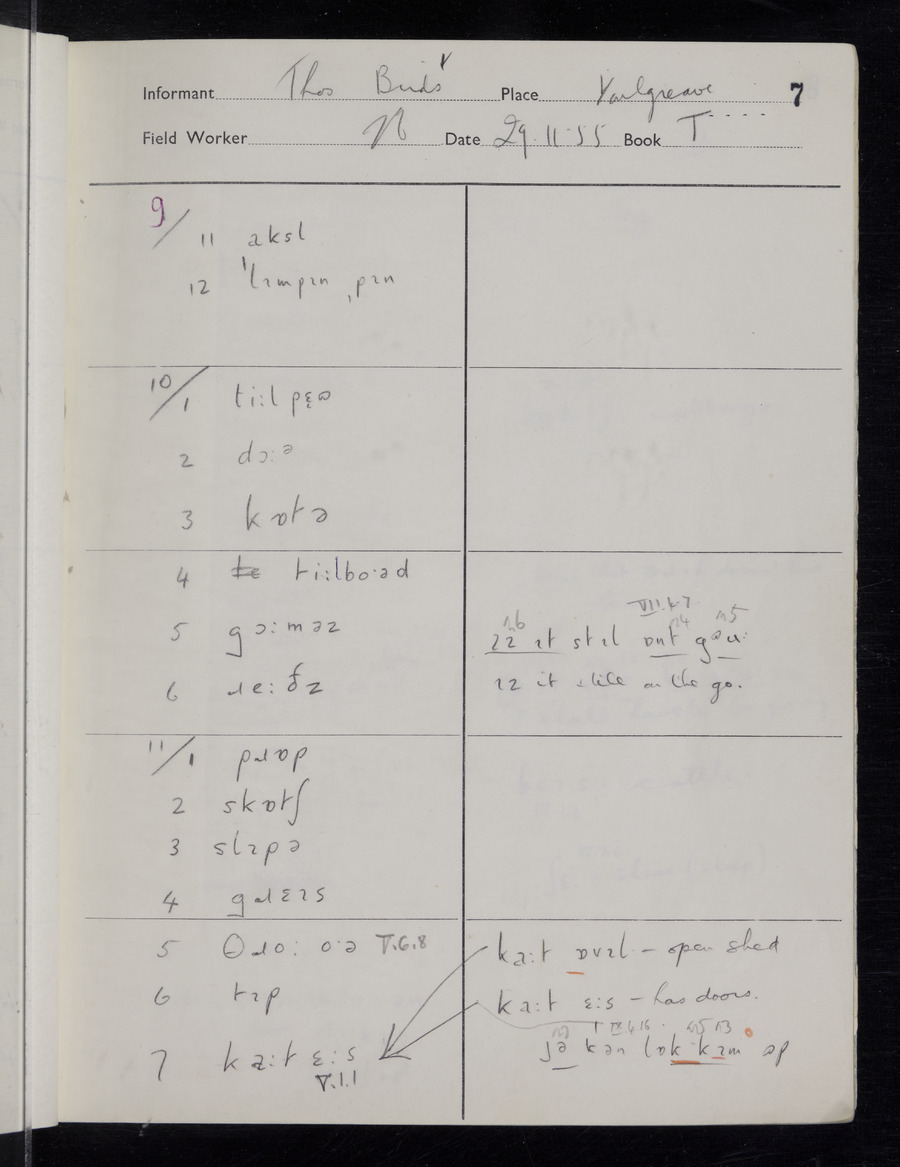 Informant Thos Birds Place Youlgreave 7
Field Worker Date 29.11.55 Book I
9/11 aksl
12 ˈlɪmpɪn ˌpɪn
10/1 ti:l
2 dɔ:ə
3 kɒtə
4 ti:lbo·əd
5 gɔ:məz
6 ɹe:ðz
ɪz ɪt stɪl ɒnt
VII.4.7
is it still on the go.
11/1 pɹɒp
2 skɒtʃ
3 slɪpə
4 gɹɛɪs
5 θɹo: o·ə V.6.8
6 tɪp
7 ka:t ɛ:s
V.1.1
ka:t ɒvɪl – open shed
ka:t ɛ:s – has doors.
jə kən lɒk